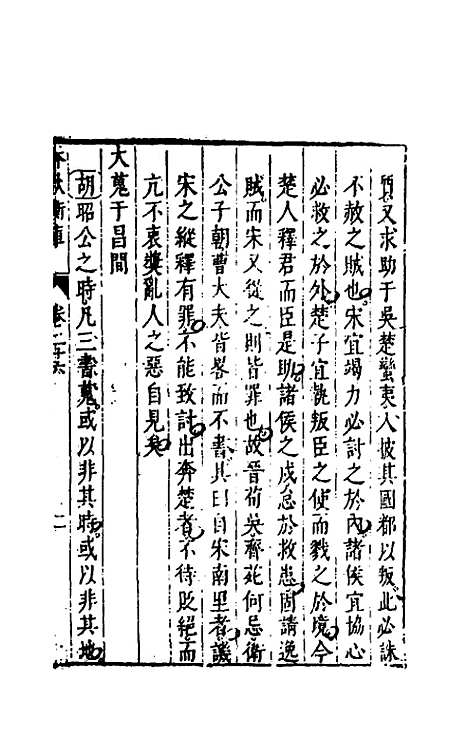 質又求助于吳楚蠻夷入披其國都以叛此必誅
不赦之賊也宋宜竭力必討之於內諸侯宜協心
必救之於外楚子宜執叛臣之使而戮之於境今
楚人釋君而臣是助諸侯之戍怠於救患固請逸
賊而宋又從之則皆罪也故晉荀吳齊苑何忌衛
公子朝曹大夫皆畧而不書其曰自宋南里者譏
宋之縱釋有罪不能致討出奔楚者不待貶絕而
亢不衷獎亂人之惡自見矣
大蒐于昌間
胡昭公之時凡三書蒐或以非其時或以非其地
春秋衡庫 卷二十六 二